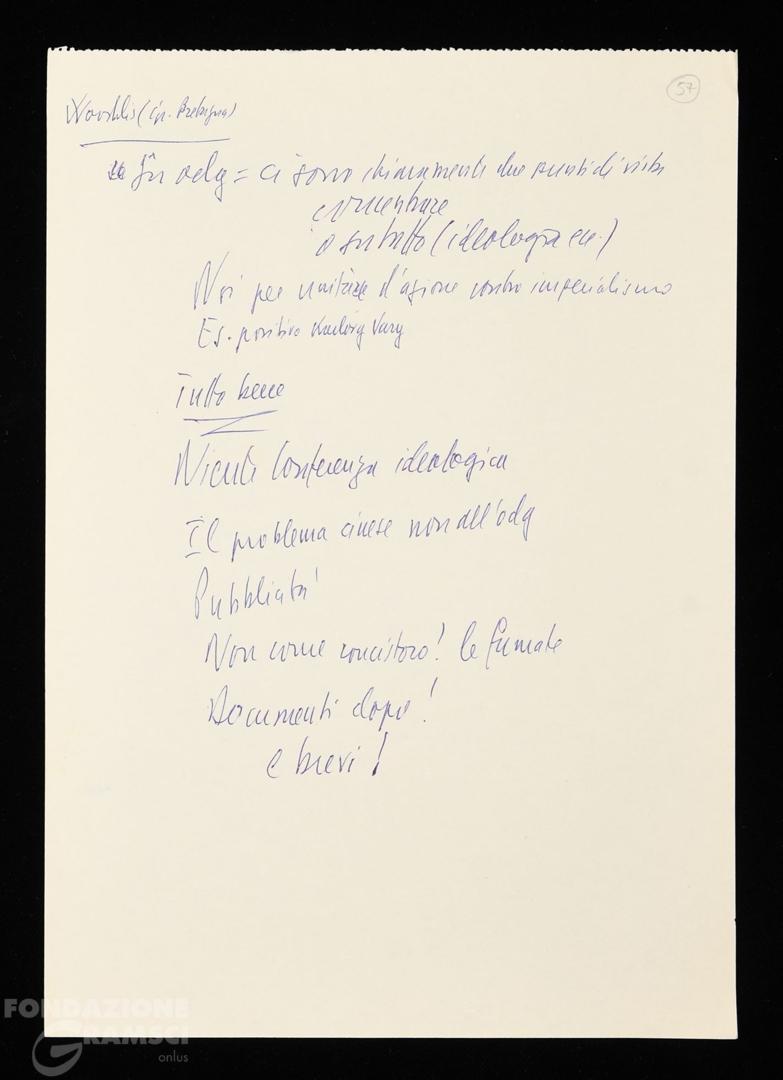 57
Woodis (Gr. Bretagna)
In odg = ci sono chiaramente due punti di vista
concentrare
o su tutto (ideologia ecc.)
Noi per unità d'azione contro imperialismo
Es. positivo Karlovy Vary
Tutto bene
Niente Conferenza ideologica
Il problema cinese non all'odg
Pubblicità
Non come concistoro! le fumate
Documenti dopo!
e brevi!
FONDAZIONE
GRAMSCI
onlus